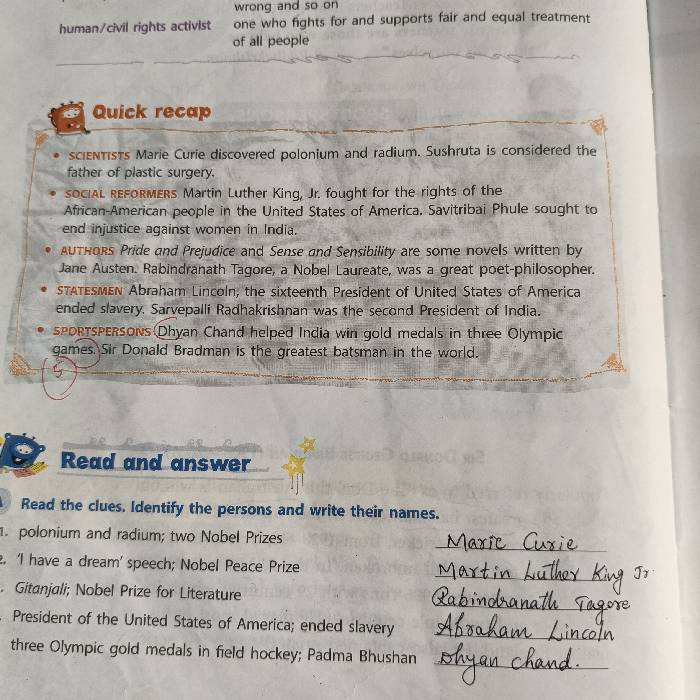 wrong and so on
human/civil rights activist one who fights for and supports fair and equal treatment
of all people
Quick recap
• SCIENTISTS Marie Curie discovered polonium and radium. Sushruta is considered the
father of plastic surgery.
• SOCIAL REFORMERS Martin Luther King, Jr. fought for the rights of the
African-American people in the United States of America. Savitribai Phule sought to
end injustice against women in India.
• AUTHORS Pride and Prejudice and Sense and Sensibility are some novels written by
Jane Austen. Rabindranath Tagore, a Nobel Laureate, was a great poet-philosopher.
• STATESMEN Abraham Lincoln, the sixteenth President of United States of America
ended slavery. Sarvepalli Radhakrishnan was the second President of India.
• SPORTSPERSONS Dhyan Chand helped India win gold medals in three Olympic
games. Sir Donald Bradman is the greatest batsman in the world.
5
Read and answer
Read the clues. Identify the persons and write their names.
1. polonium and radium; two Nobel Prizes Marie Curie
2. 'I have a dream' speech; Nobel Peace Prize Martin Luther King Jr.
. Gitanjali; Nobel Prize for Literature Rabindranath Tagore
. President of the United States of America; ended slavery Abraham Lincoln
three Olympic gold medals in field hockey; Padma Bhushan Dhyan chand.